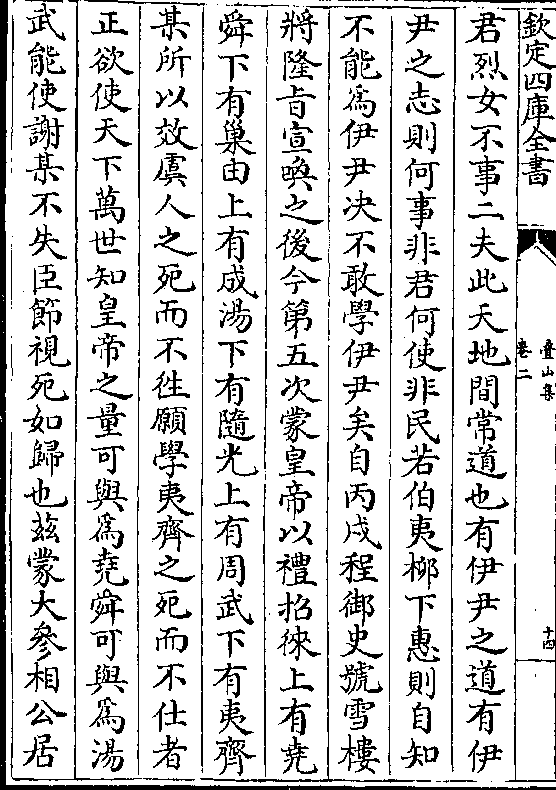 欽定四庫全書
疊山集
卷二
十四
君烈女不事二夫此天地間常道也有伊尹之道有伊
尹之志則何事非君何使非民若伯夷栁下惠則自知
不能為伊尹决不敢學伊尹矣自丙戌程御史號雪樓
將隆旨宣喚之後今第五次蒙皇帝以禮招徠上有堯
舜下有巢由上有成湯下有隨光上有周武下有夷齊
某所以效虞人之死而不徃願學夷齊之死而不仕者
正欲使天下萬世知皇帝之量可與為堯舜可與為湯
武能使謝某不失臣節視死如歸也兹蒙大參相公居